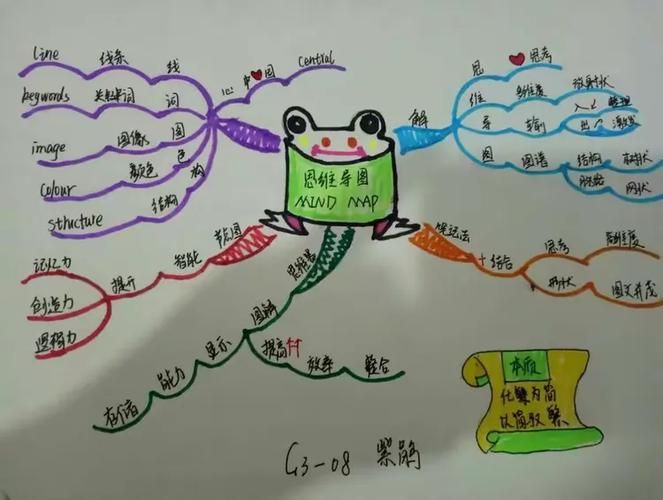 line 线条 线
keywords 关键词 词
image 图像 图
colour 颜色 色
structure 结构 构
心 中 图 central
思维导图
MIND MAP
解
思 思考
维 多维度 放射状
导 输 入 整理
出 激发
图 图谱 结构 树状
脉络 网状
记忆力
创造力
逻辑力
提升 智能
思维器
图解
显示
能力
存储
提高
效率 整合
笔记法
结合
思考 多维度
形状 图文并茂
本质
化繁为简
以简驭繁
G3-08 紫鹃